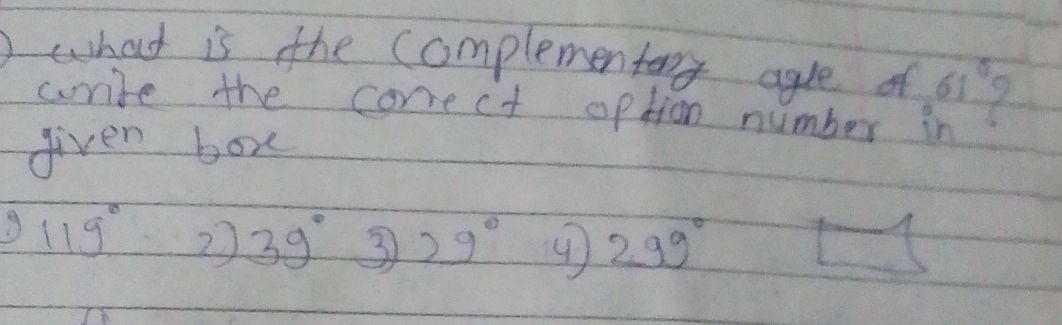 ) what is the complementary agle of 61°?
write the correct option number in
given box
1) 119° 2) 39° 3) 29° 4) 299°